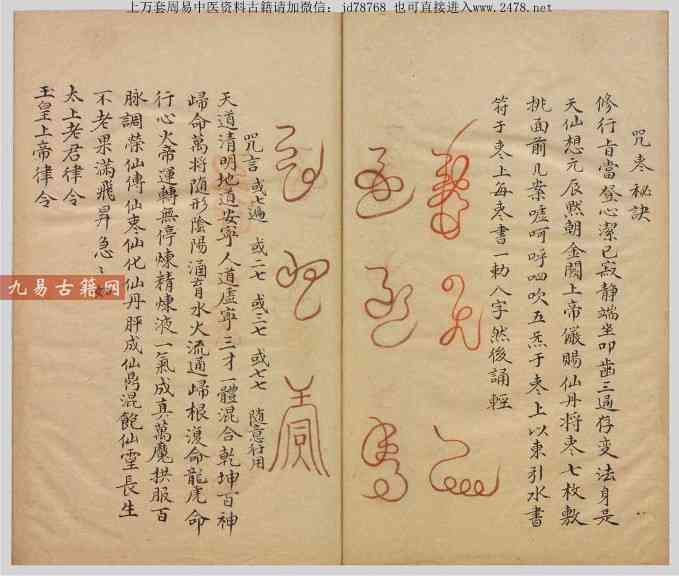 上万套周易中医资料古籍请加微信: jd78768 也可直接进入www.2478.net
咒枣秘訣
修行者當發心潔已寂靜端坐叩齒三通存变法身是
天仙想元辰黙朝金闕上帝儼賜仙丹将枣七枚敷
挑面前几案噓呵呼呬吹五炁于枣上以東引水書
符于枣上每枣書一勅八字然後誦輕
咒言 或七遍 或二七 或三七 或七七 隨意行用
天道清明地道安寧人道虛寧三才一體混合乾坤百神
歸命萬将隨形陰陽涵育水火流通歸根復命龍虎命
行心火帝運轉無停煉精煉液一氣成真萬魔拱服百
脉調榮仙傳仙枣仙化仙丹胖成仙鳥混飽仙靈長生
不老果滿飛昇急
太上老君律令
玉皇上帝律令
九易古籍网